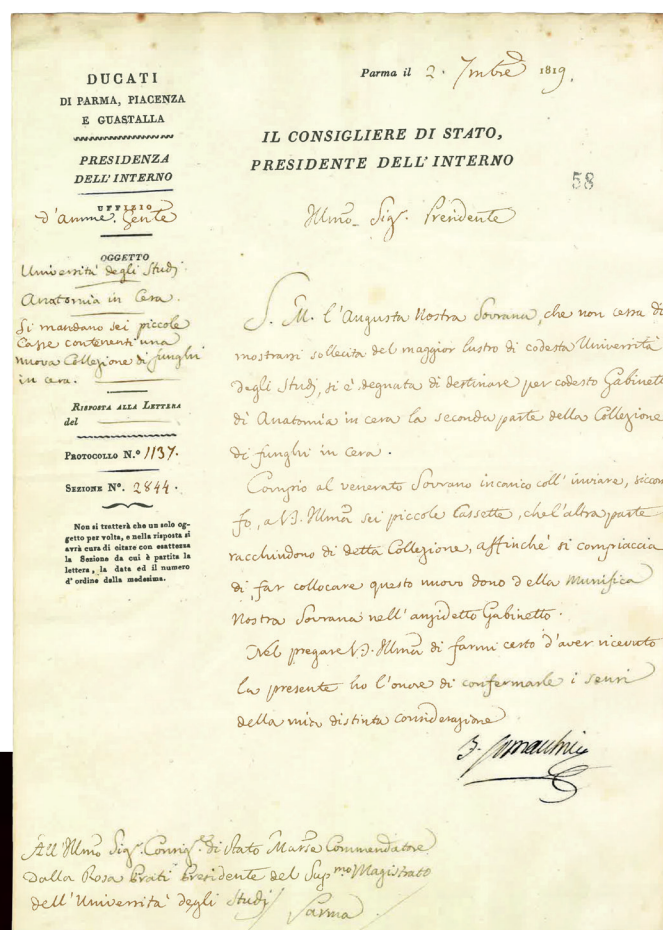 DUCATI
DI PARMA, PIACENZA
E GUASTALLA
PRESIDENZA
DELL'INTERNO
UFFIZIO
d'Amm.e Gente
OGGETTO
Università degli Studj
Anatomia in Cera.
Si mandano sei piccole
Casse contenenti una
nuova Collezione di funghi
in cera.
RISPOSTA ALLA LETTERA
del
PROTOCOLLO N.º 1137.
SEZIONE Nº. 2844.
Non si tratterà che un solo og-
getto per volta, e nella risposta si
avrà cura di citare con esattezza
la Sezione da cui è partita la
lettera, la data ed il numero
d'ordine della medesima.
Parma il 2. 7mbre 1819.
IL CONSIGLIERE DI STATO,
PRESIDENTE DELL'INTERNO
58
Illmo Sigr. Presidente
S. M. l'Augusta Nostra Sovrana, che non cessa di
mostrarsi sollecita del maggior lustro di codesta Università
degli Studj, si è degnata di destinare per codesto Gabinetto
di Anatomia in cera la seconda parte della Collezione
di funghi in cera.
Compio al venerato Sovrano incarico coll'inviare, siccom
fo, a V.S. Illma sei piccole Cassette, che l'altra parte
racchiudono di detta Collezione, affinchè si compiaccia
di far collocare questo nuovo dono della Munifica
Nostra Sovrana nell'anzidetto Gabinetto.
Nel pregare V.S. Illma di farmi certo d'aver ricevuto
la presente ho l'onore di confermarle i sensi
della mia distinta considerazione
All'Illmo Sigr. Consigre. di Stato Marse Commendatore
Dalla Rosa Prati Presidente del Supmo Magistrato
dell'Università degli Studj
Parma